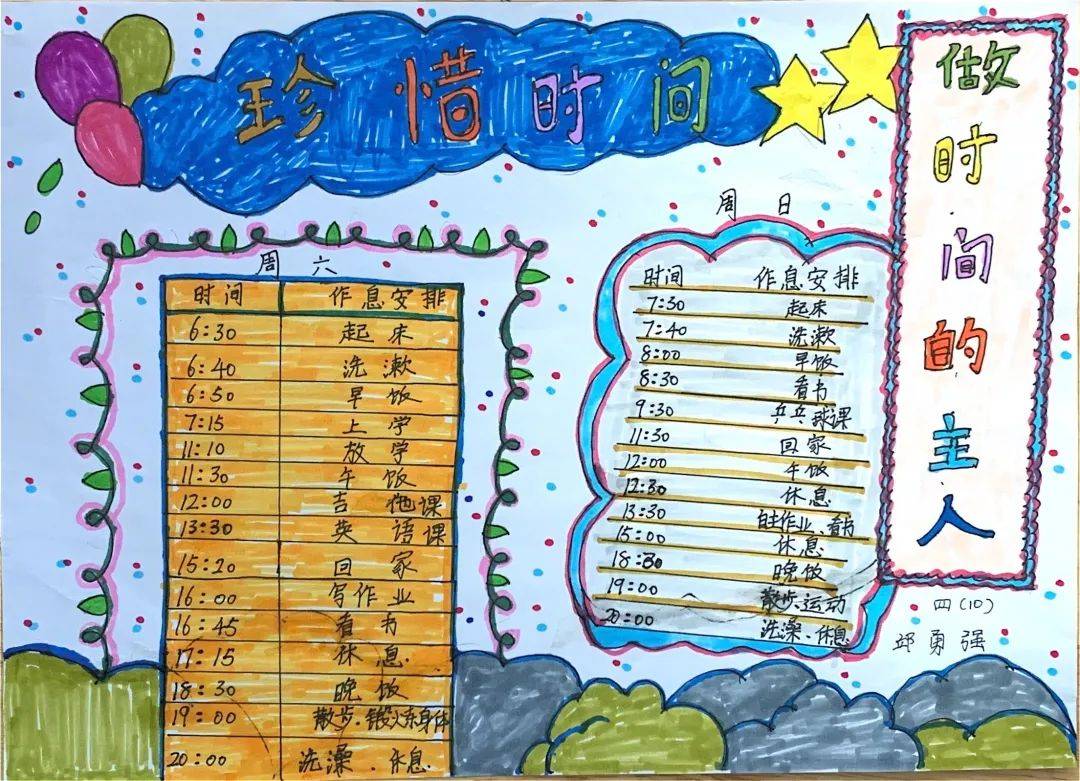 珍惜时间
做时间的主人
周六
时间 作息安排
6:30 起床
6:40 洗漱
6:50 早饭
7:15 上学
11:10 放学
11:30 午饭
12:00 吉他课
13:30 英语课
15:20 回家
16:00 写作业
16:45 看书
17:15 休息
18:30 晚饭
19:00 散步、锻火东身体
20:00 洗澡、休息
周日
时间 作息安排
7:30 起床
7:40 洗漱
8:00 早饭
8:30 看书
9:30 乒乓球课
11:30 回家
12:00 午饭
12:30 休息
13:30 自主作业、看书
15:00 休息
18:30 晚饭
19:00 散步、运动
20:00 洗澡、休息
四(10)
邱勇强